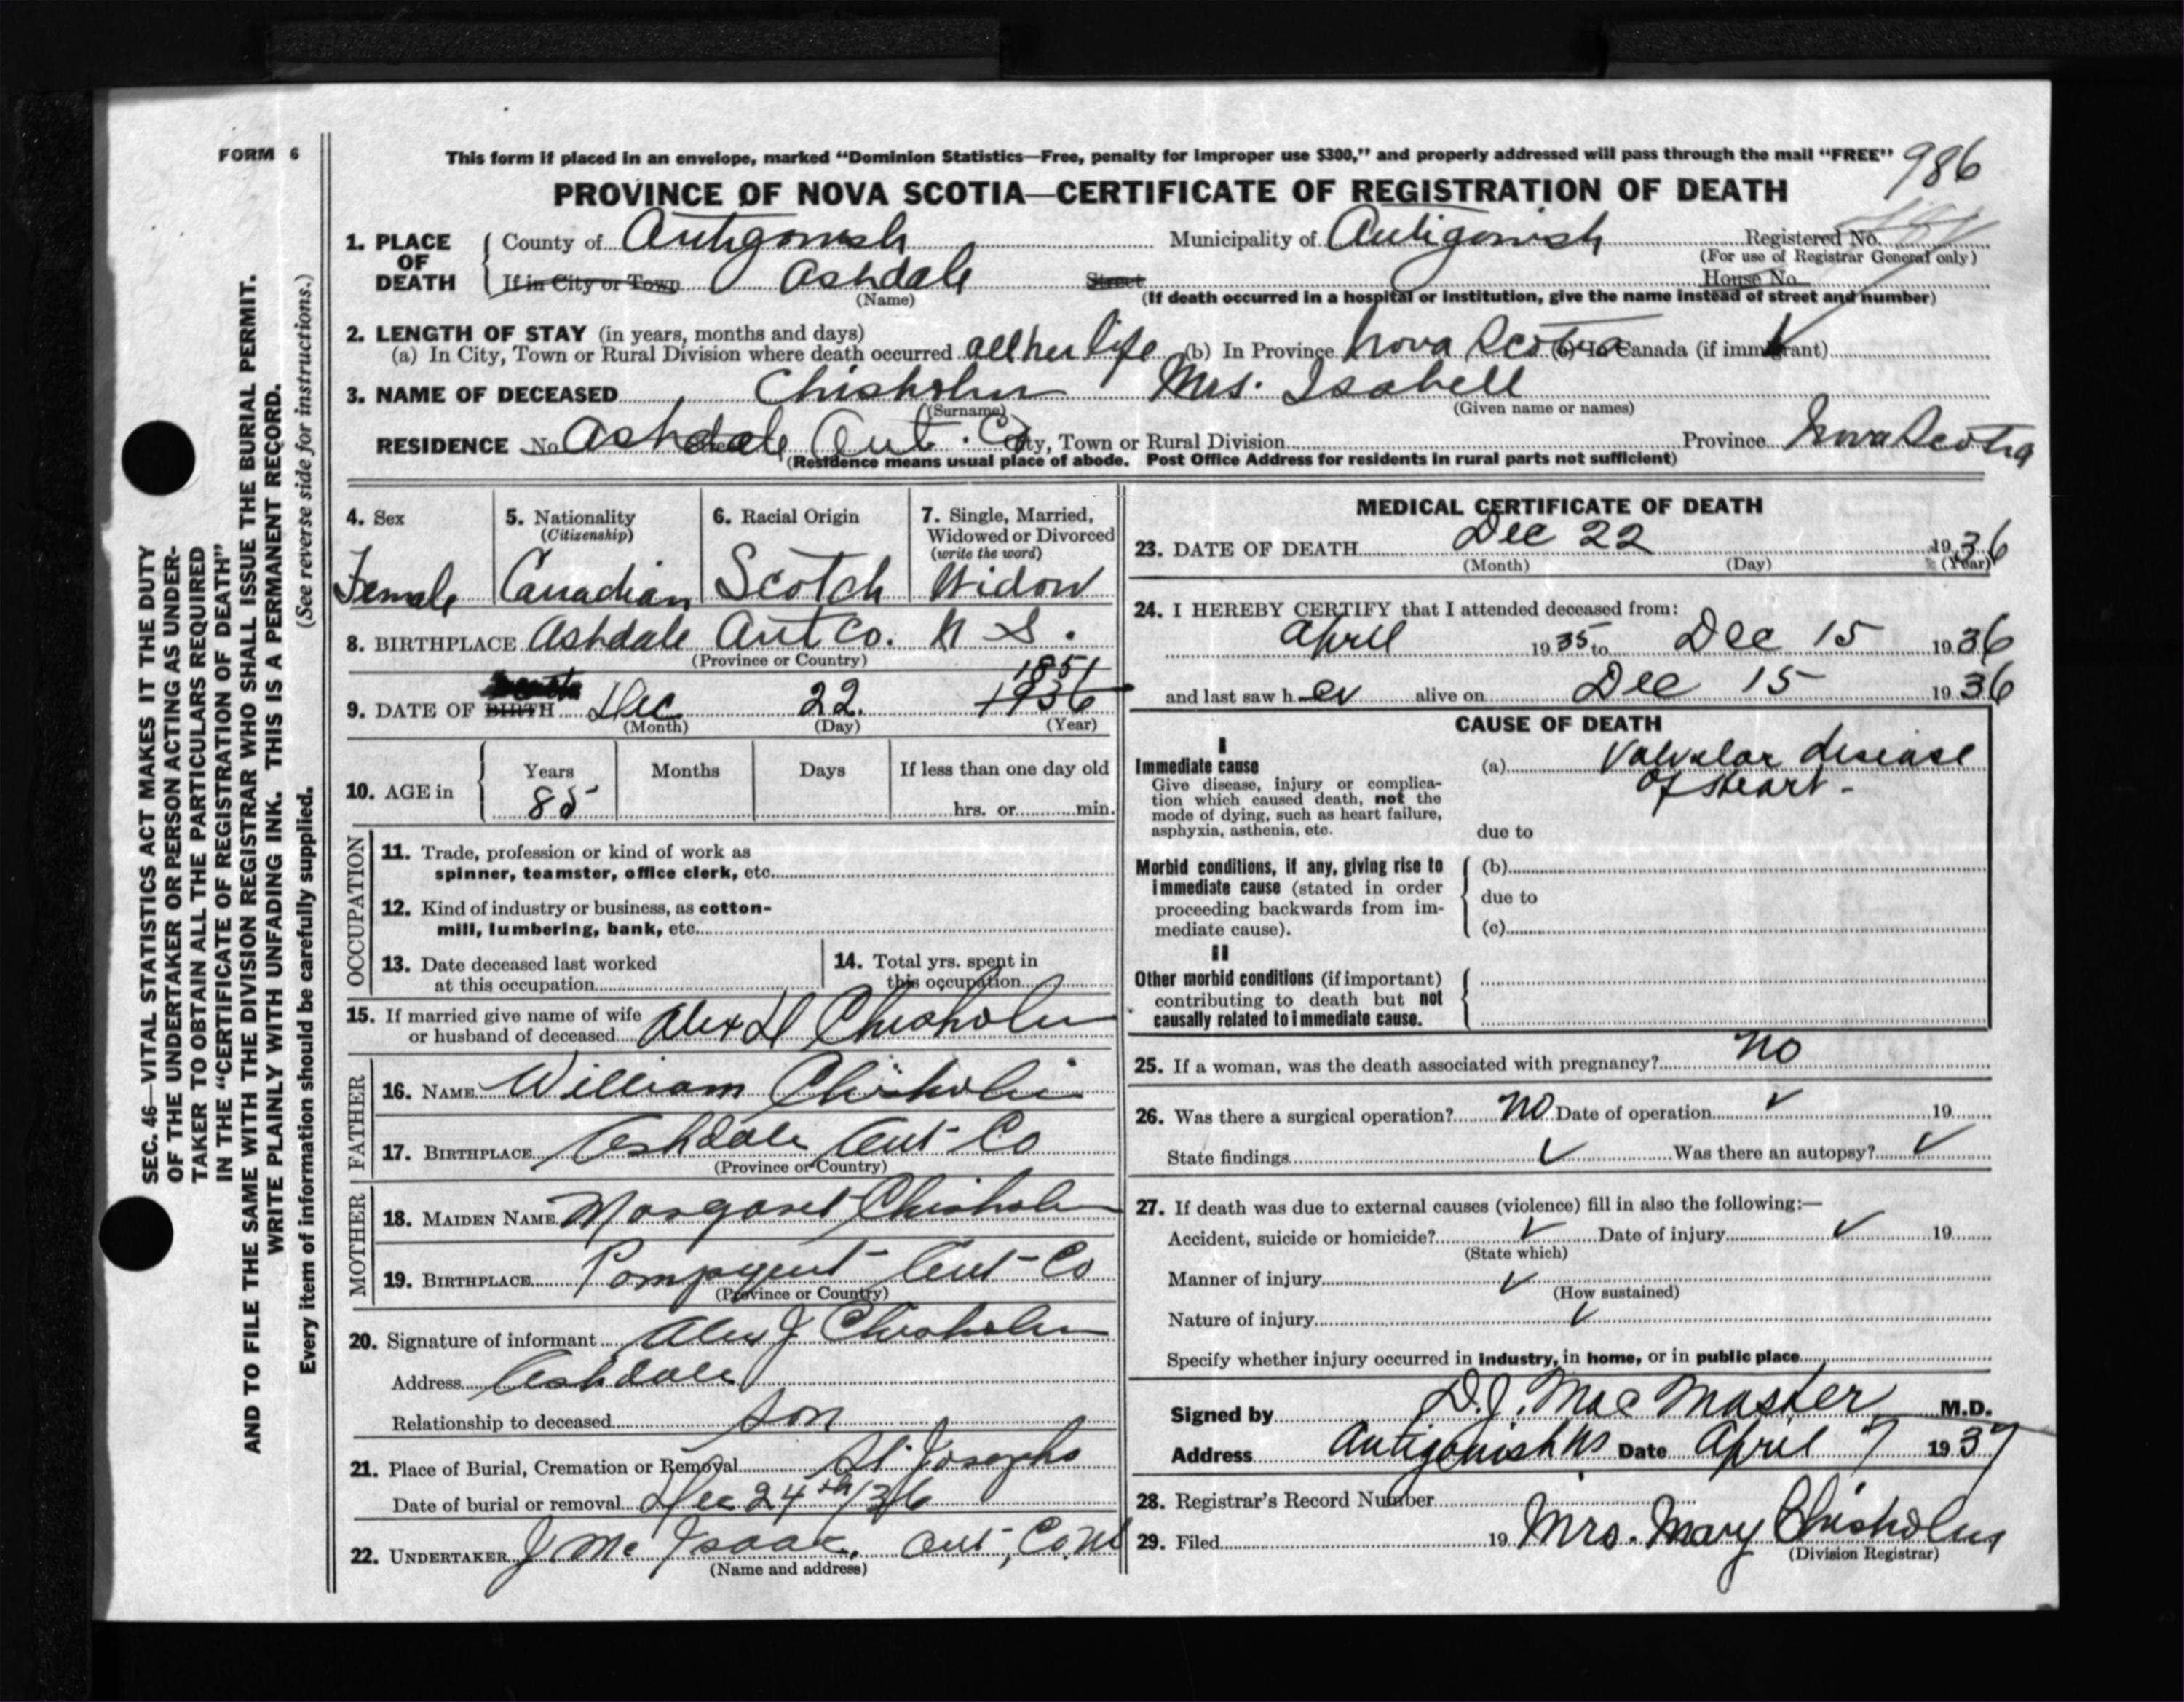 FORM 6
This form if placed in an envelope, marked “Dominion Statistics—Free, penalty for improper use $300,” and properly addressed will pass through the mail “FREE”
986
PROVINCE OF NOVA SCOTIA—CERTIFICATE OF REGISTRATION OF DEATH
1. PLACE OF DEATH County of Antigonish Municipality of Antigonish Registered No.
(For use of Registrar General only)
If in City or Town Ashdale Street House No.
(Name) (If death occurred in a hospital or institution, give the name instead of street and number)
2. LENGTH OF STAY (in years, months and days)
(a) In City, Town or Rural Division where death occurred all her life (b) In Province Nova Scotia (c) In Canada (if immigrant)
3. NAME OF DECEASED Chisholm Mrs. Isabell
(Surname) (Given name or names)
RESIDENCE No. Ashdale Ant. Co City, Town or Rural Division Province Nova Scotia
(Residence means usual place of abode. Post Office Address for residents in rural parts not sufficient)
4. Sex Female
5. Nationality (Citizenship) Canadian
6. Racial Origin Scotch
7. Single, Married, Widowed or Divorced (write the word) Widow
8. BIRTHPLACE Ashdale Ant Co. N S.
(Province or Country)
1851
9. DATE OF BIRTH Dec 22. 1936
(Month) (Day) (Year)
10. AGE in Years 85 Months Days If less than one day old
hrs. or min.
OCCUPATION
11. Trade, profession or kind of work as
spinner, teamster, office clerk, etc.
12. Kind of industry or business, as cotton-
mill, lumbering, bank, etc.
13. Date deceased last worked
at this occupation
14. Total yrs. spent in
this occupation
15. If married give name of wife
or husband of deceased Alex D Chisholm
FATHER
16. NAME William Chisholm
17. BIRTHPLACE Ashdale Ant-Co
(Province or Country)
MOTHER
18. MAIDEN NAME Margaret Chisholm
19. BIRTHPLACE Pomquet Ant-Co
(Province or Country)
20. Signature of informant Alex J Chisholm
Address Ashdale
Relationship to deceased son
21. Place of Burial, Cremation or Removal St. Josephs
Date of burial or removal Dec 24th/36
22. UNDERTAKER J. Mc Isaac. Ant, Co. NS
(Name and address)
MEDICAL CERTIFICATE OF DEATH
23. DATE OF DEATH Dec 22 1936
(Month) (Day) (Year)
24. I HEREBY CERTIFY that I attended deceased from:
April 1935 to Dec 15 1936
and last saw her alive on Dec 15 1936
CAUSE OF DEATH
I
Immediate cause
Give disease, injury or complica-
tion which caused death, not the
mode of dying, such as heart failure,
asphyxia, asthenia, etc.
(a) Valvular disease
of Heart-
due to
Morbid conditions, if any, giving rise to
immediate cause (stated in order
proceeding backwards from im-
mediate cause).
(b)
due to
(c)
II
Other morbid conditions (if important)
contributing to death but not
causally related to immediate cause.
25. If a woman, was the death associated with pregnancy? no
26. Was there a surgical operation? no Date of operation ✓ 19
State findings ✓ Was there an autopsy? ✓
27. If death was due to external causes (violence) fill in also the following:—
Accident, suicide or homicide? ✓ Date of injury ✓ 19
(State which)
Manner of injury ✓
(How sustained)
Nature of injury ✓
Specify whether injury occurred in industry, in home, or in public place
Signed by D.J. MacMaster M.D.
Address Antigonish NS Date April 7 1937
28. Registrar's Record Number
29. Filed 19 Mrs. Mary Chisholm
(Division Registrar)
SEC. 46—VITAL STATISTICS ACT MAKES IT THE DUTY
OF THE UNDERTAKER OR PERSON ACTING AS UNDER-
TAKER TO OBTAIN ALL THE PARTICULARS REQUIRED
IN THE “CERTIFICATE OF REGISTRATION OF DEATH”
AND TO FILE THE SAME WITH THE DIVISION REGISTRAR WHO SHALL ISSUE THE BURIAL PERMIT.
WRITE PLAINLY WITH UNFADING INK. THIS IS A PERMANENT RECORD.
Every item of information should be carefully supplied. (See reverse side for instructions.)